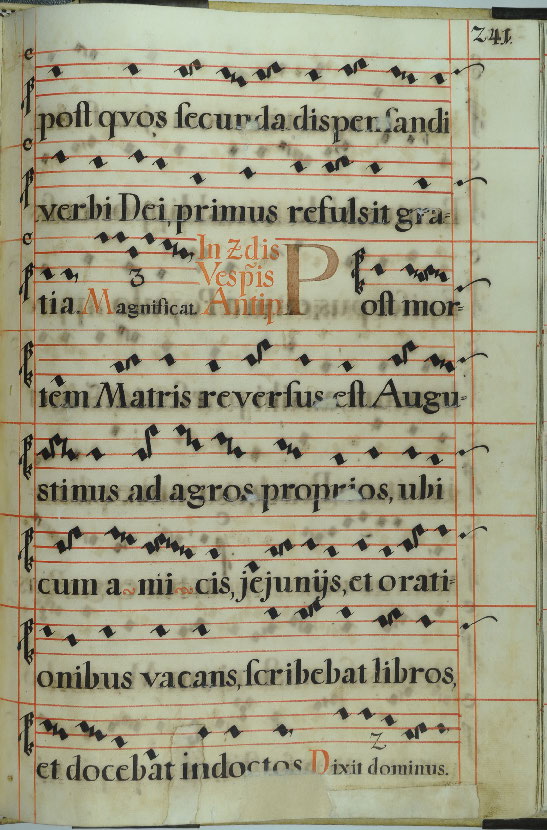 241.
post qvos secunda dispensandi
verbi Dei, primus refulsit gra-
tia. Magnificat. 3 In 2dis Vesp̃is Antip. Post mor-
tem Matris reversus est Augu-
stinus ad agros proprios, ubi
cum a~mi~cis, jejunijs, et orati-
onibus vacans, scribebat libros,
et docebat indoctos Dixit dominus. 2